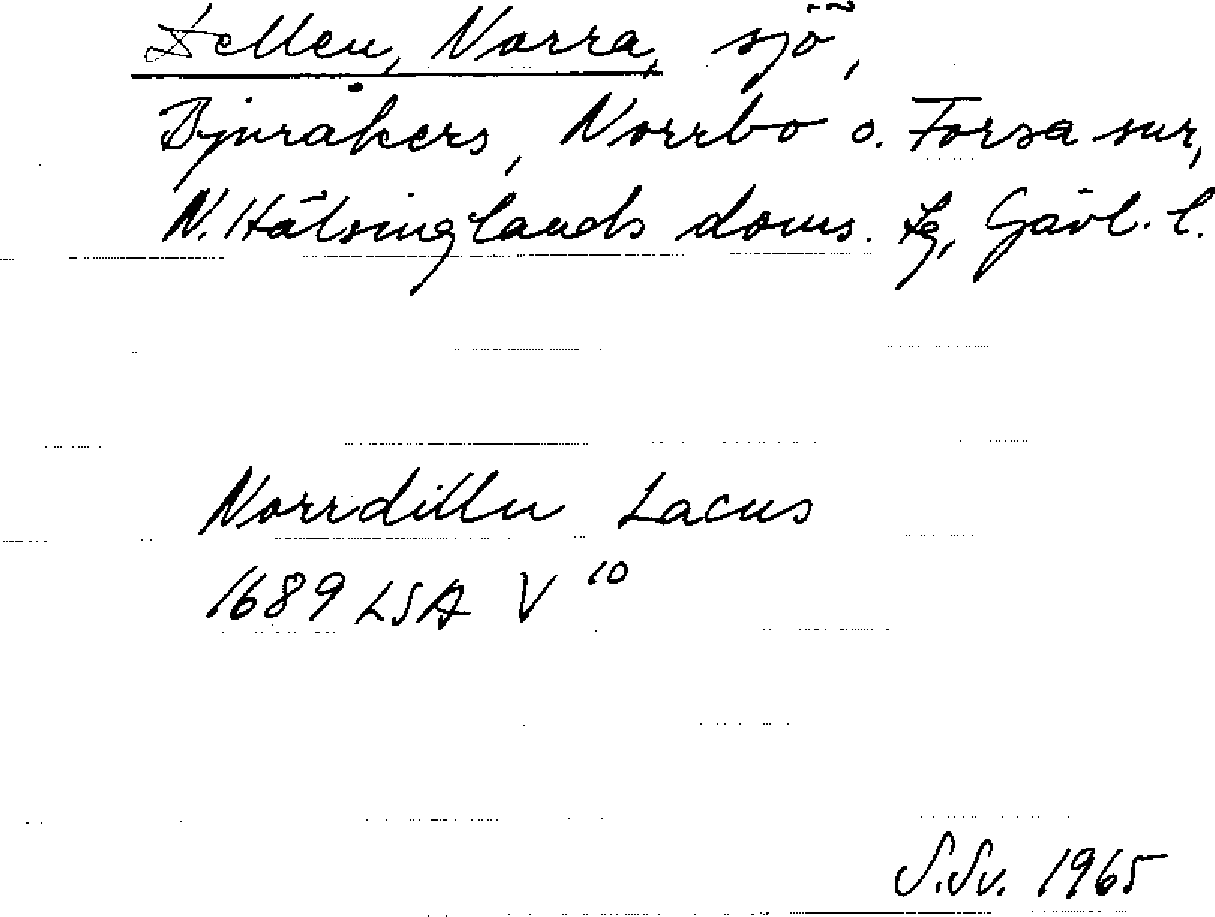 Dellen, Norra, sjö,
Bjuråkers, Norrbo o. Forsa snr,
N. Hälsinglands doms. tg, Gävl. l.
Norrdillu Lacus
1689 LSA V 10
S.Sv. 1965